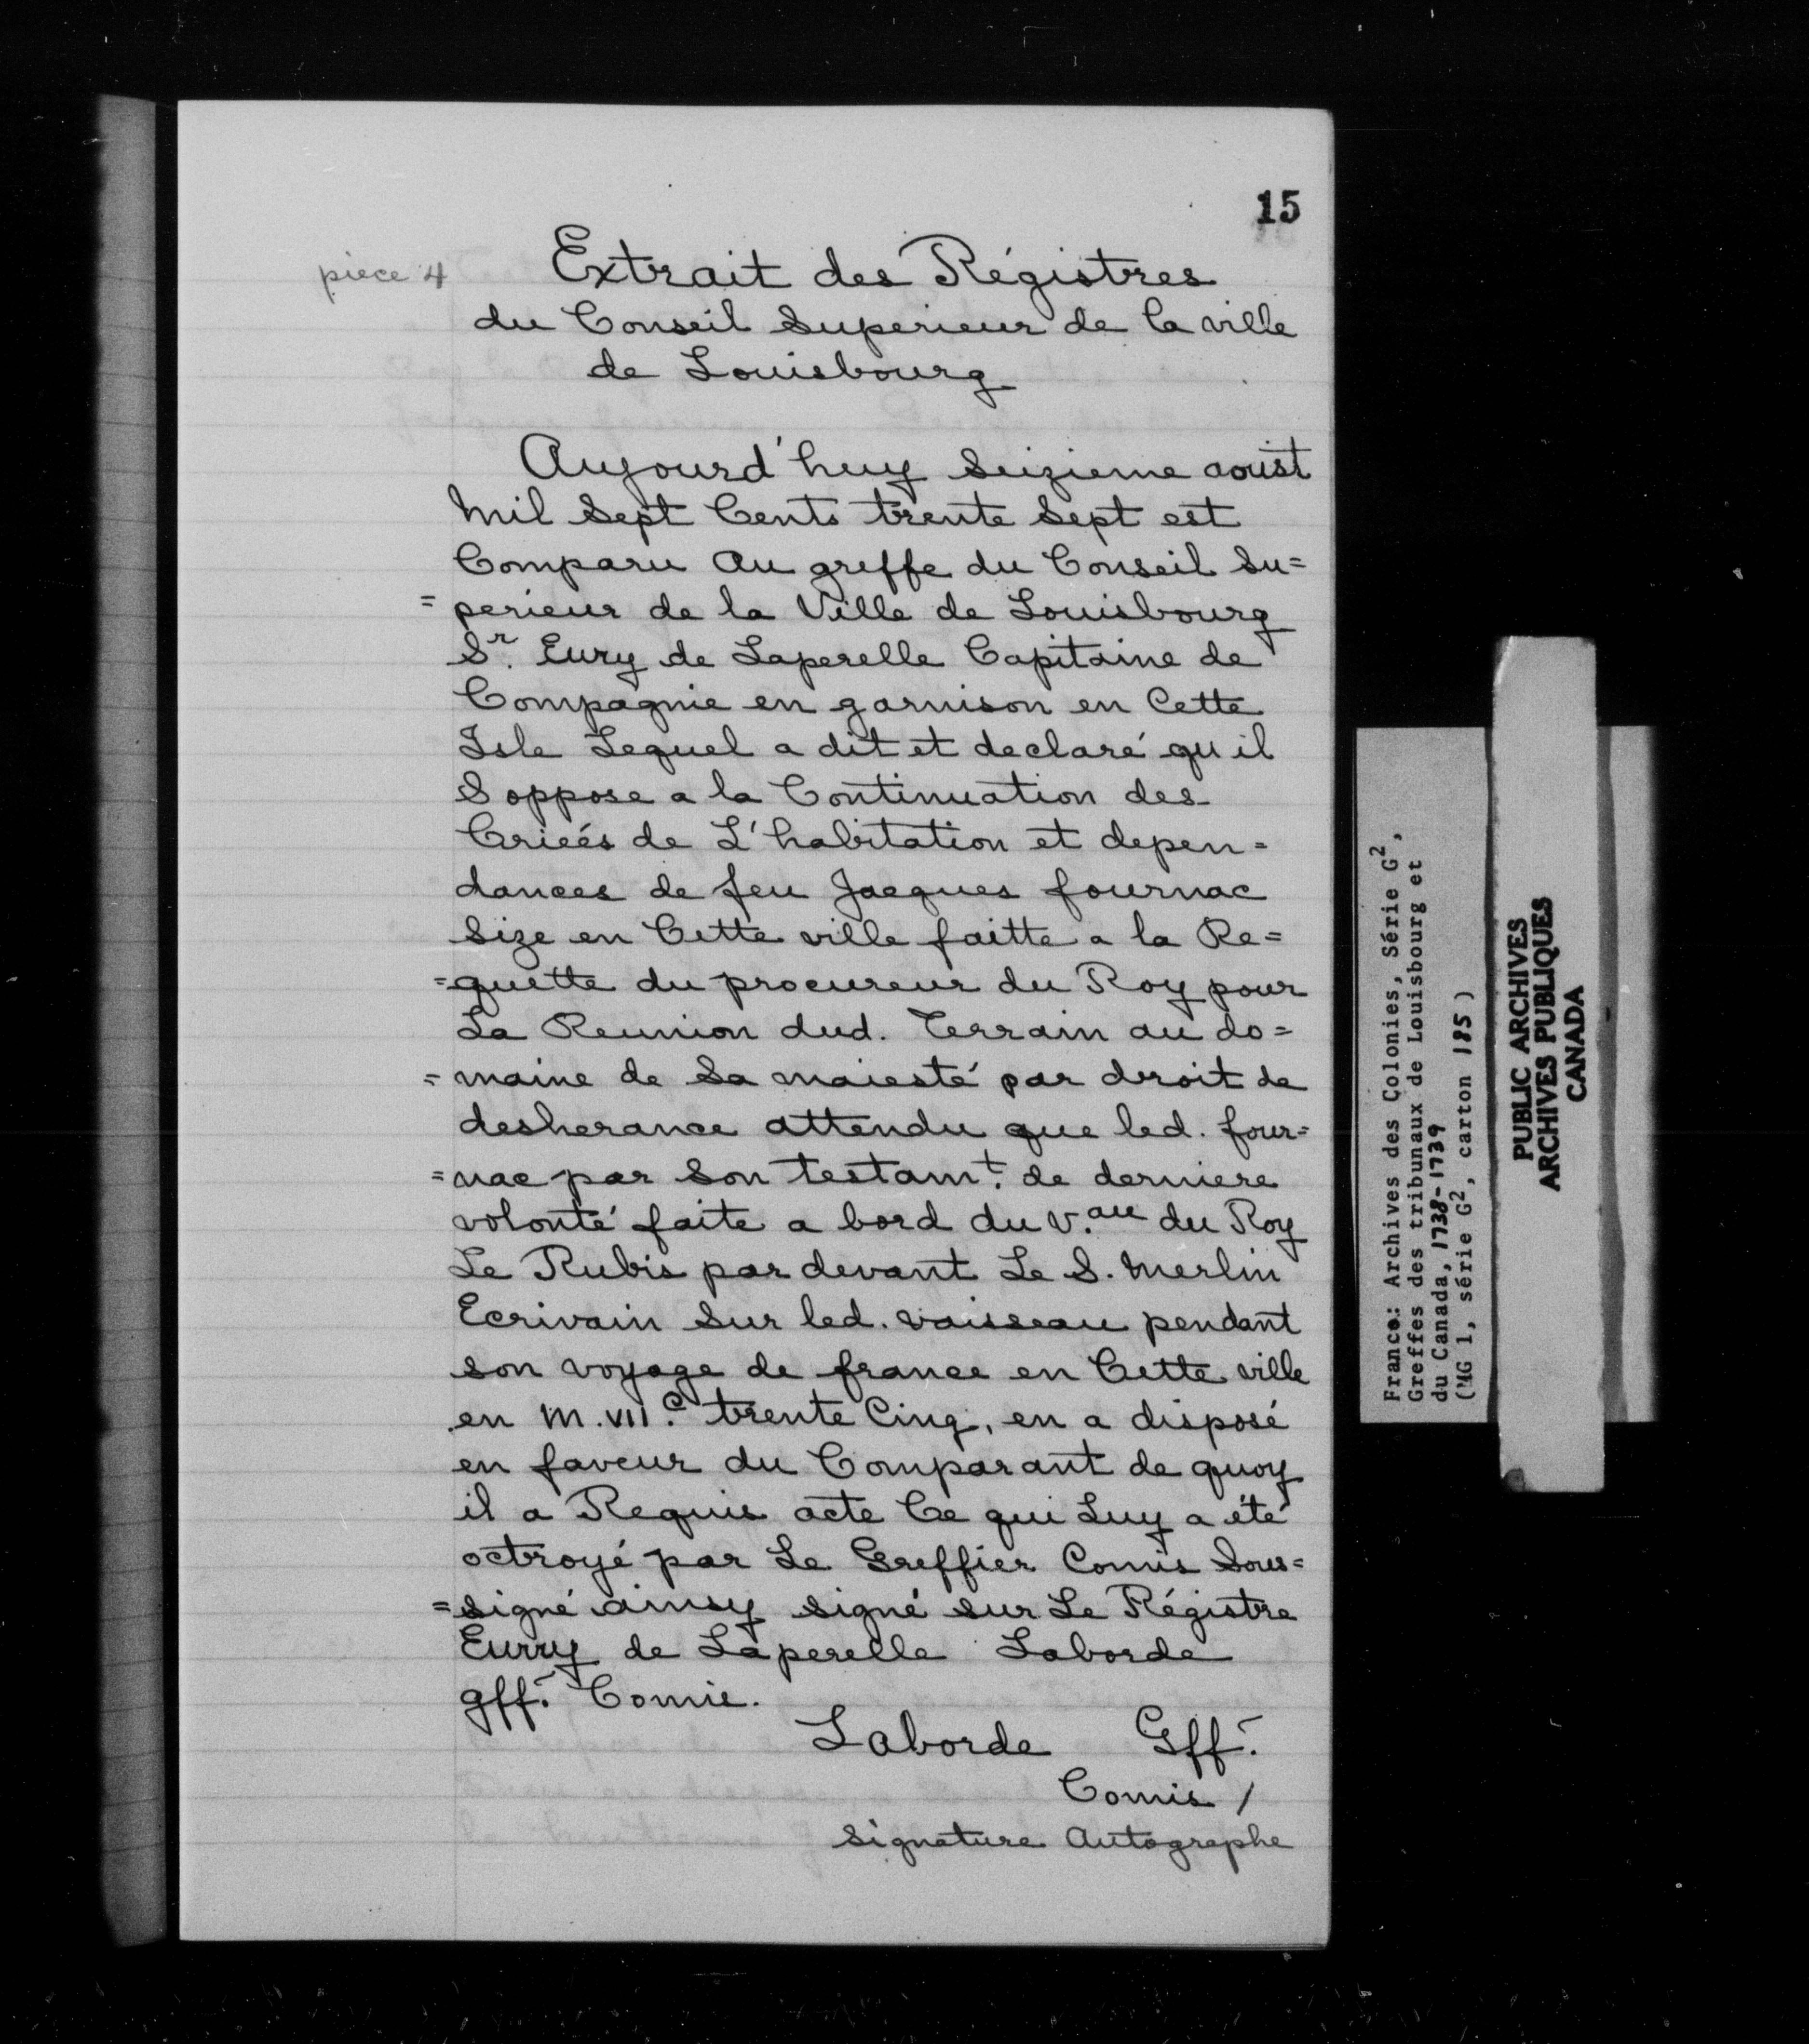 15
piece 4
Extrait des Régistres
du Conseil Superieur de la ville
de Louisbourg
Aujourd'huy Seizieme aoust
Mil Sept Cents trente Sept est
Comparu Au greffe du Conseil Su=
=perieur de la Ville de Louisbourg
Sr. Eury de Laperelle Capitaine de
Compagnie en garnison en Cette
Isle Lequel a dit et declaré qu il
S oppose a la Continuation des
Crieés de L'habitation et depen=
dances de feu Jacques fournac
Size en Cette ville faitte a la Re=
=quette du procureur du Roy pour
La Reunion dud. Terrain au do=
=maine de Sa maiesté par droit de
desherance attendu que led. four=
=nac par Son testamt. de derniere
volonté faite a bord du v.au du Roy
Le Rubis par devant Le S. Merlin
Ecrivain Sur led. vaisseau pendant
son voyage de france en Cette ville
en M.VII.c trente Cinq, en a disposé
en faveur du Comparant de quoy
il a Requis acte Ce qui Luy a été
octroyé par Le Greffier Comis Sous=
=signé ainsy signé sur Le Régistre
Eurry de Laperelle Laborde
gff. Comis.
Laborde Gff.
Comis /
Signature Autographe
France: Archives des Colonies, Série G2,
Greffes des tribunaux de Louisbourg et
du Canada, 1738-1739
(MG 1, série G2, carton 185)
PUBLIC ARCHIVES
ARCHIVES PUBLIQUES
CANADA